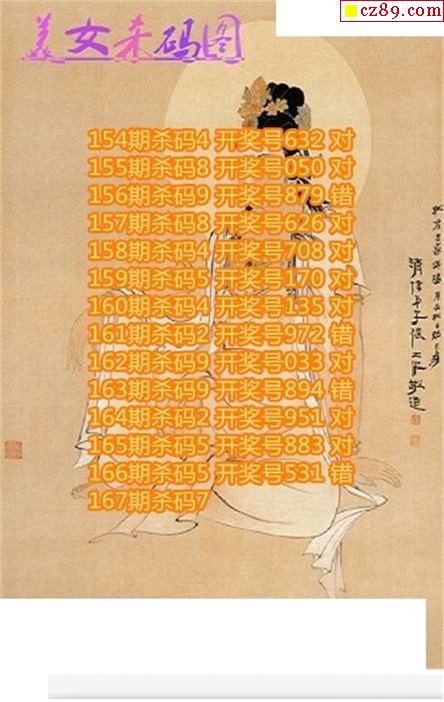 cz89.com
美女杀码图
154期杀码4 开奖号632 对
155期杀码8 开奖号050 对
156期杀码9 开奖号879 错
157期杀码8 开奖号626 对
158期杀码4 开奖号708 对
159期杀码5 开奖号170 对
160期杀码4 开奖号135 对
161期杀码2 开奖号972 错
162期杀码9 开奖号033 对
163期杀码9 开奖号894 错
164期杀码2 开奖号951 对
165期杀码5 开奖号883 对
166期杀码5 开奖号531 错
167期杀码7